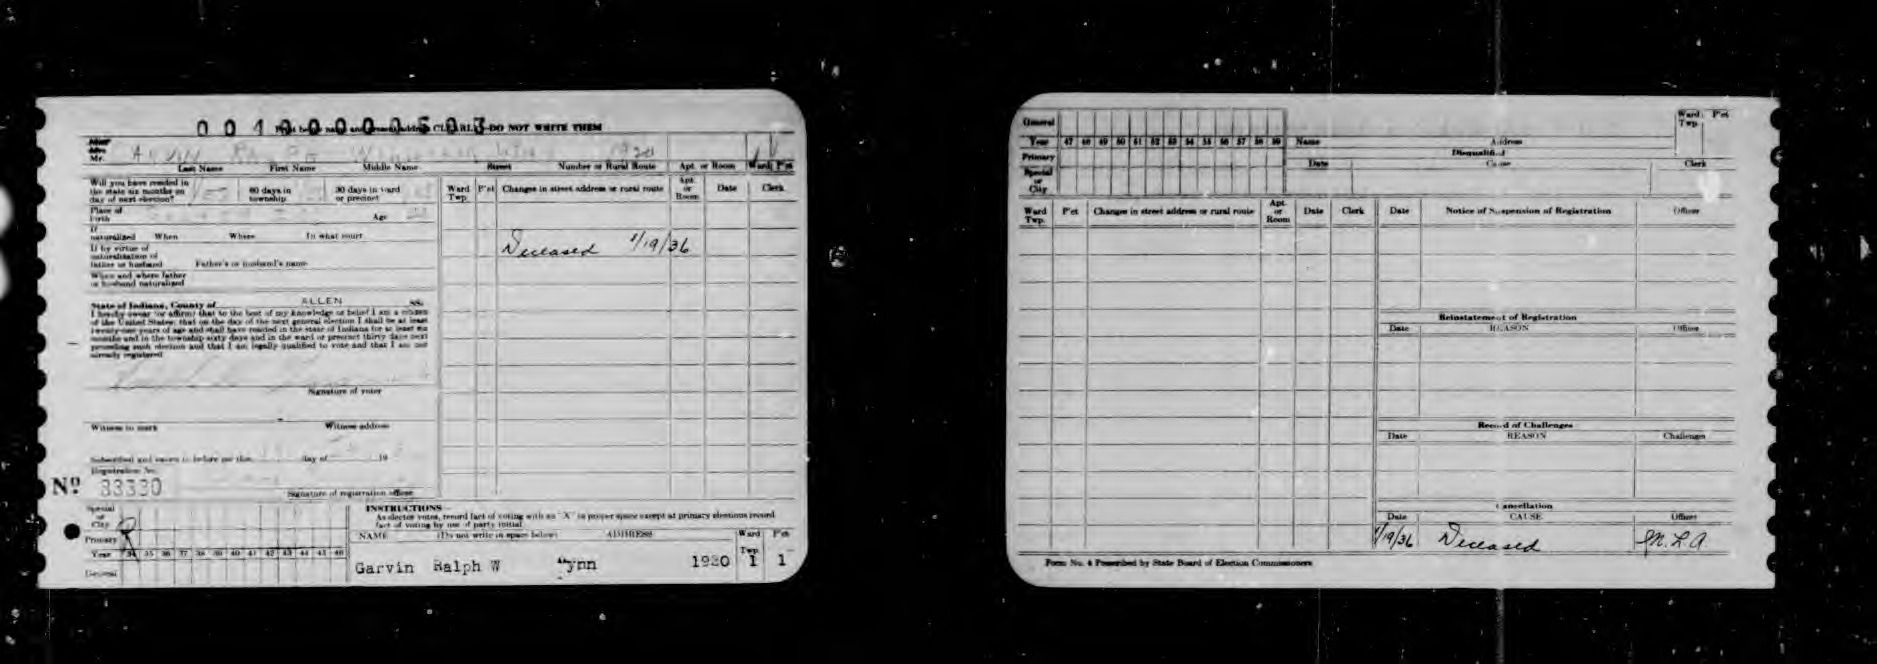 0 0 1 0 0 0 0 0 5 0 3
DO NOT WRITE THEM
Mr.
Last Name First Name Middle Name Street Number or Rural Route Apt. or Room Ward P'ct
Will you have resided in the state six months on day of next election? 60 days in township 30 days in ward or precinct
Ward Twp. P'ct Changes in street address or rural route Apt. or Room Date Clerk
Place of birth Age
If naturalized When Where In what court
Deceased 1/19/36
If by virtue of naturalization of father or husband Father's or husband's name
When and where father or husband naturalized
State of Indiana, County of ALLEN ss.
I hereby swear (or affirm) that to the best of my knowledge or belief I am a citizen
of the United States; that on the day of the next general election I shall be at least
twenty-one years of age and shall have resided in the state of Indiana for at least six
months and in the township sixty days and in the ward or precinct thirty days next
preceding such election and that I am legally qualified to vote and that I am not
already registered
Signature of voter
Witness to mark Witness address
Subscribed and sworn to before me this day of 19
Registration No.
No 33330
Signature of registration officer
INSTRUCTIONS
As elector votes, record fact of voting with an "X" in proper space except at primary elections record
fact of voting by use of party initial
Special or City
Primary
Year 34 35 36 37 38 39 40 41 42 43 44 45 46
General
NAME (Do not write in space below) ADDRESS Ward Twp. P'ct
Garvin Ralph W 1920 1 1
General
Year 47 48 49 50 51 52 53 54 55 56 57 58 59
Primary
Special or City
Name Address Ward Twp. P'ct
Disqualified
Date Cause Clerk
Ward Twp. P'ct Changes in street address or rural route Apt. or Room Date Clerk
Date Notice of Suspension of Registration Officer
Reinstatement of Registration
Date REASON Officer
Record of Challenges
Date REASON Challenger
Cancellation
Date CAUSE Officer
1/19/36 Deceased
Form No. 4 Prescribed by State Board of Election Commissioners